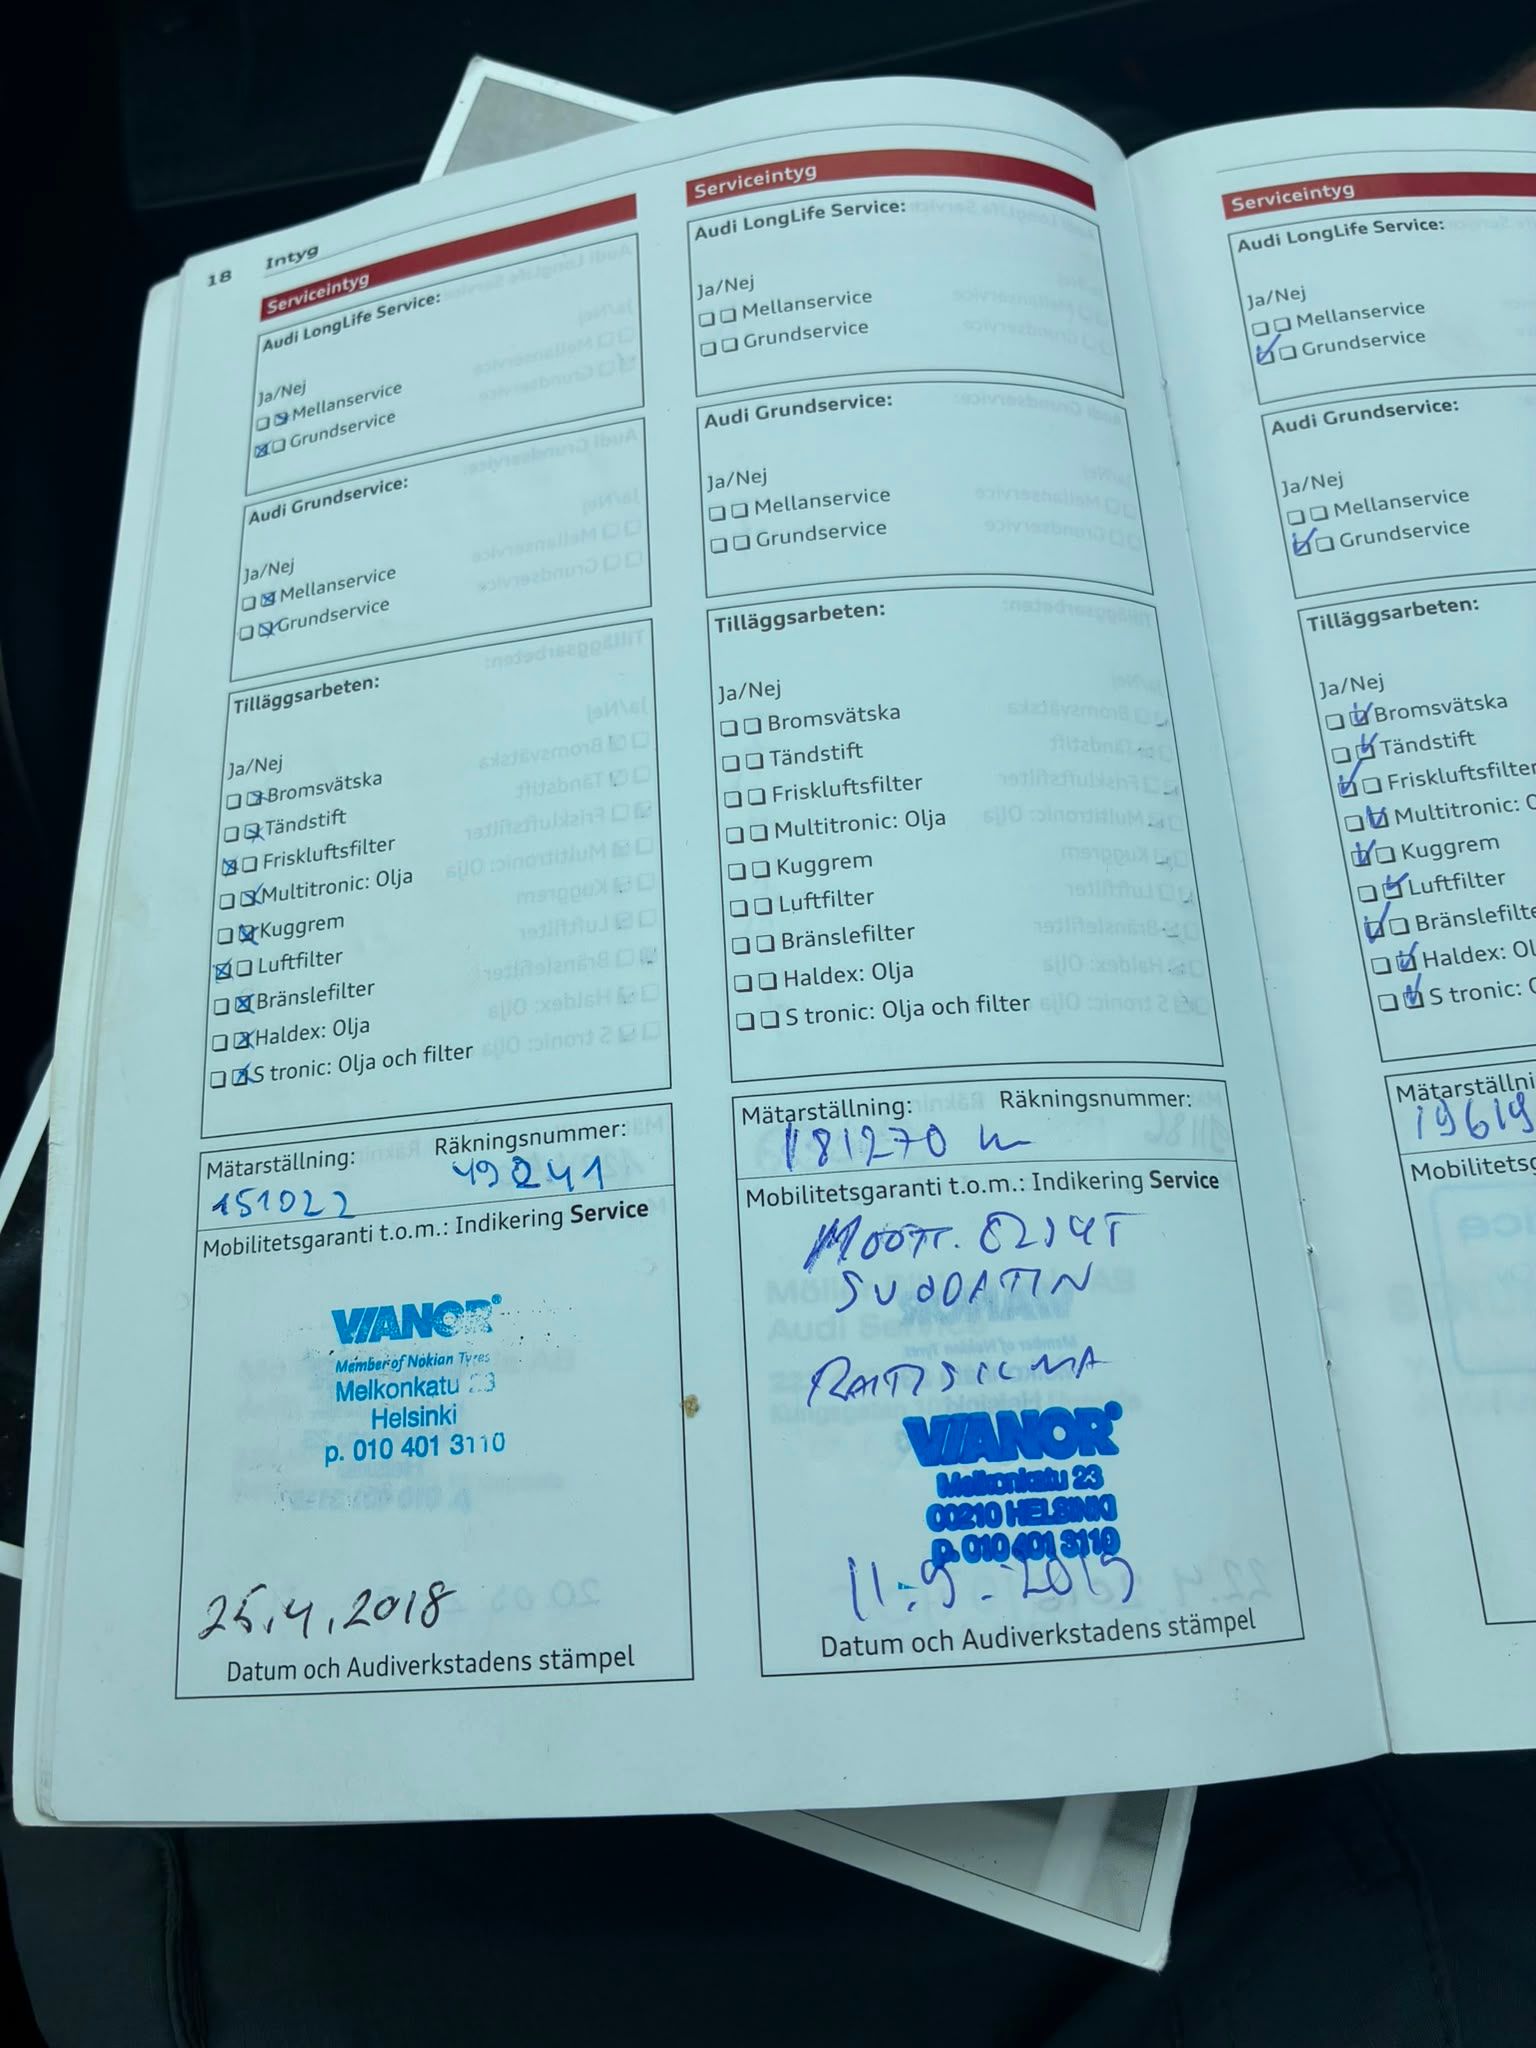 18 Intyg
Serviceintyg
Audi LongLife Service:
Ja/Nej
Mellanservice
Grundservice
Audi Grundservice:
Ja/Nej
Mellanservice
Grundservice
Tilläggsarbeten:
Ja/Nej
Bromsvätska
Tändstift
Friskluftsfilter
Multitronic: Olja
Kuggrem
Luftfilter
Bränslefilter
Haldex: Olja
S tronic: Olja och filter
Mätarställning: Räkningsnummer:
151022 49241
Mobilitetsgaranti t.o.m.: Indikering Service
VIANOR®
Member of Nokian Tyres
Melkonkatu 23
Helsinki
p. 010 401 3110
25.4.2018
Datum och Audiverkstadens stämpel
Serviceintyg
Audi LongLife Service:
Ja/Nej
Mellanservice
Grundservice
Audi Grundservice:
Ja/Nej
Mellanservice
Grundservice
Tilläggsarbeten:
Ja/Nej
Bromsvätska
Tändstift
Friskluftsfilter
Multitronic: Olja
Kuggrem
Luftfilter
Bränslefilter
Haldex: Olja
S tronic: Olja och filter
Mätarställning: Räkningsnummer:
181270
Mobilitetsgaranti t.o.m.: Indikering Service
SUODATIN
VIANOR®
Melkonkatu 23
00210 HELSINKI
p. 010 401 3110
11.9.2019
Datum och Audiverkstadens stämpel
Serviceintyg
Audi LongLife Service:
Ja/Nej
Mellanservice
Grundservice
Audi Grundservice:
Ja/Nej
Mellanservice
Grundservice
Tilläggsarbeten:
Ja/Nej
Bromsvätska
Tändstift
Friskluftsfilter
Multitronic: O
Kuggrem
Luftfilter
Bränslefilte
Haldex: Ol
S tronic: O
Mätarställni
19619
Mobilitetsg